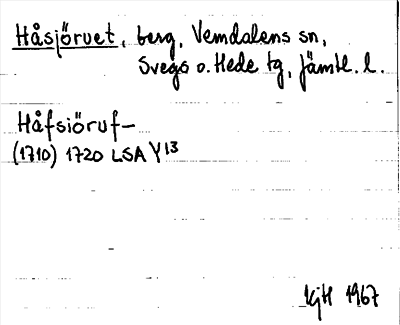 Håsjöruet, berg, Vemdalens sn,
Svegs o. Hede tg, Jämtl. l.
Håfsiöruf—
(1710) 1720 LSA Y13
KjH 1967